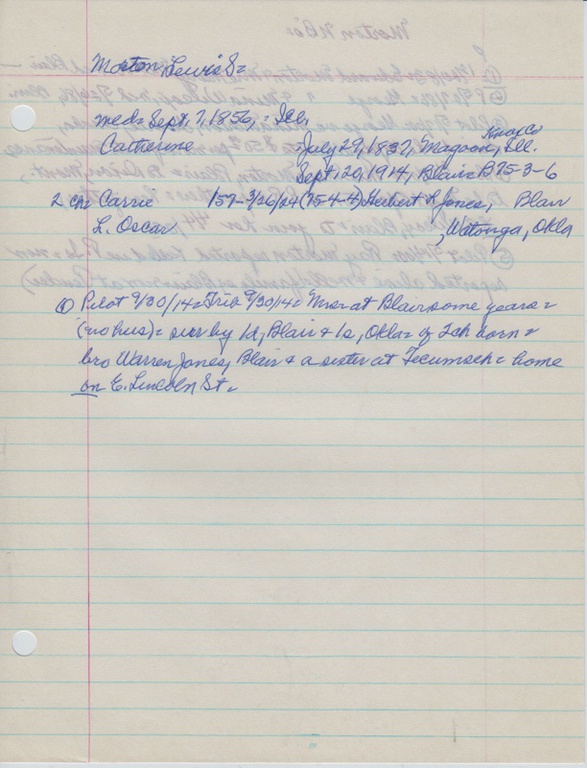 Morton, Lewis S=
med= Sept. 7, 1856, = Ill.
Knox Co
Catherine =July 29, 1837, "Magoon, Ill.
Sept. 20, 1914, Blair= B75-3-6
2 ch= Carrie 157-3/26/24 (75-4-4) Herbert L Jones, Blair
L. Oscar , Watonga, Okla
① Pilot 9/30/14= Trib 9/30/14= Mrs= at Blair some years=
(no hus)= surv by 1d, Blair & 1s, Okla= of 2ch born=
bro Warren Jones, Blair & a sister at Tecumseh= home
on E. Lincoln St=